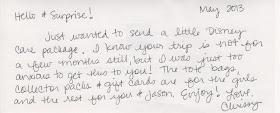 May 2013
Hello & Surprise!
Just wanted to send a little Disney
care package. I know your trip is not for
a few months still, but I was just too
anxious to get this to you! The tote bags,
collector packs & gift cards are for the girls
and the rest for you & Jason. Enjoy! Love,
Chrissy